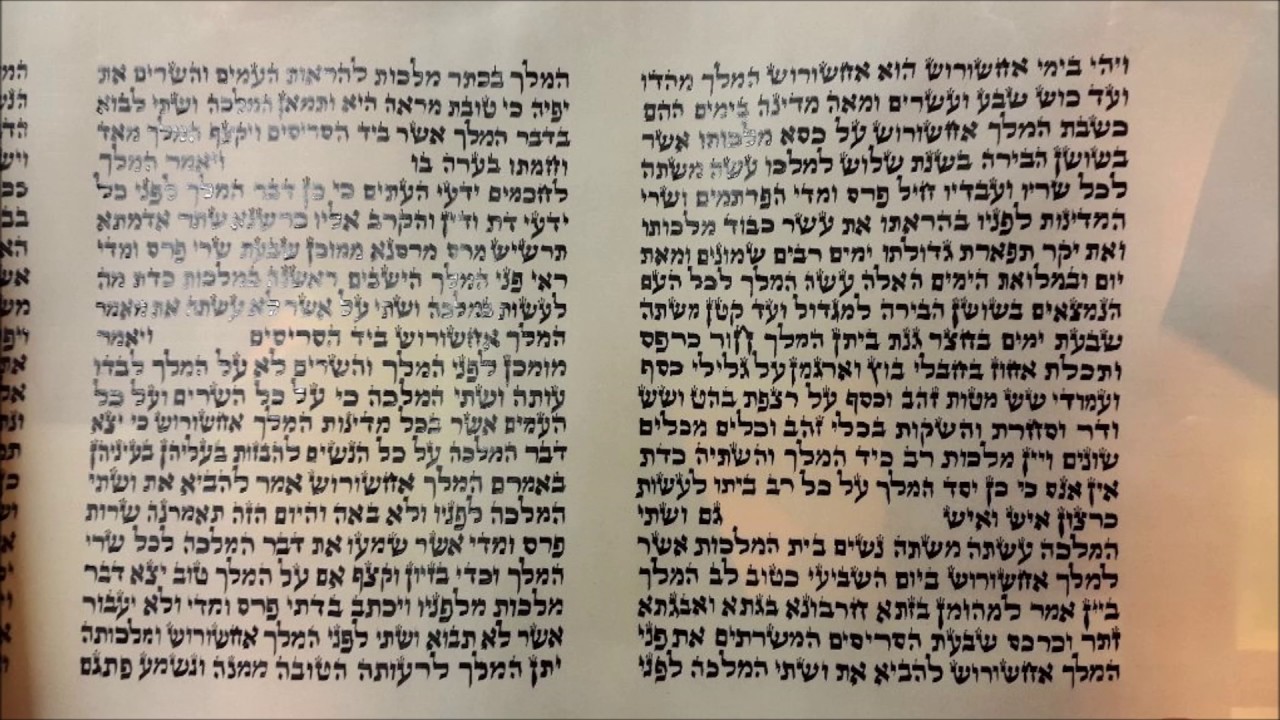 ויהי בימי אחשורוש הוא אחשורוש המלך מהדו
ועד כוש שבע ועשרים ומאה מדינה בימים ההם
כשבת המלך אחשורוש על כסא מלכותו אשר
בשושן הבירה בשנת שלוש למלכו עשה משתה
לכל שריו ועבדיו חיל פרס ומדי הפרתמים ושרי
המדינות לפניו בהראתו את עשר כבוד מלכותו
ואת יקר תפארת גדולתו ימים רבים שמונים ומאת
יום ובמלואת הימים האלה עשה המלך לכל העם
הנמצאים בשושן הבירה למגדול ועד קטן משתה
שבעת ימים בחצר גנת ביתן המלך חור כרפס
ותכלת אחוז בחבלי בוץ וארגמן על גלילי כסף
ועמודי שש מטות זהב וכסף על רצפת בהט ושש
ודר וסחרת והשקות בכלי זהב וכלים מכלים
שונים ויין מלכות רב כיד המלך והשתיה כדת
אין אנס כי כן יסד המלך על כל רב ביתו לעשות
כרצון איש ואיש גם ושתי
המלכה עשתה משתה נשים בית המלכות אשר
למלך אחשורוש ביום השביעי כטוב לב המלך
ביין אמר למהומן בזתא חרבונא בגתא ואבגתא
זתר וכרכס שבעת הסריסים המשרתים את פני
המלך אחשורוש להביא את ושתי המלכה לפני
המלך בכתר מלכות להראות העמים והשרים את
יפיה כי טובת מראה היא ותמאן המלכה ושתי לבוא
בדבר המלך אשר ביד הסריסים ויקצף המלך מאד
וחמתו בערה בו ויאמר המלך
לחכמים ידעי העתים כי כן דבר המלך לפני כל
ידעי דת ודין והקרב אליו כרשנא שתר אדמתא
תרשיש מרס מרסנא ממוכן שבעת שרי פרס ומדי
ראי פני המלך הישבים ראשנה במלכות כדת מה
לעשות במלכה ושתי על אשר לא עשתה את מאמר
המלך אחשורוש ביד הסריסים ויאמר
מומכן לפני המלך והשרים לא על המלך לבדו
עותה ושתי המלכה כי על כל השרים ועל כל
העמים אשר בכל מדינות המלך אחשורוש כי יצא
דבר המלכה על כל הנשים להבזות בעליהן בעיניהן
באמרם המלך אחשורוש אמר להביא את ושתי
המלכה לפניו ולא באה והיום הזה תאמרנה שרות
פרס ומדי אשר שמעו את דבר המלכה לכל שרי
המלך וכדי בזיון וקצף אם על המלך טוב יצא דבר
מלכות מלפניו ויכתב בדתי פרס ומדי ולא יעבור
אשר לא תבוא ושתי לפני המלך אחשורוש ומלכותה
יתן המלך לרעותה הטובה ממנה ונשמע פתגם